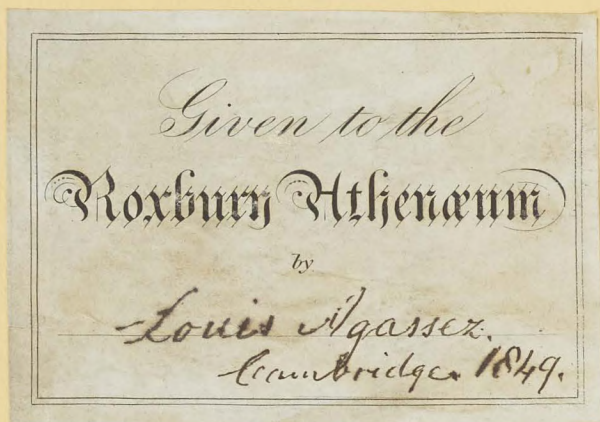 Given to the
Roxbury Athenæum
by
Louis Agassez.
Cambridge. 1849.